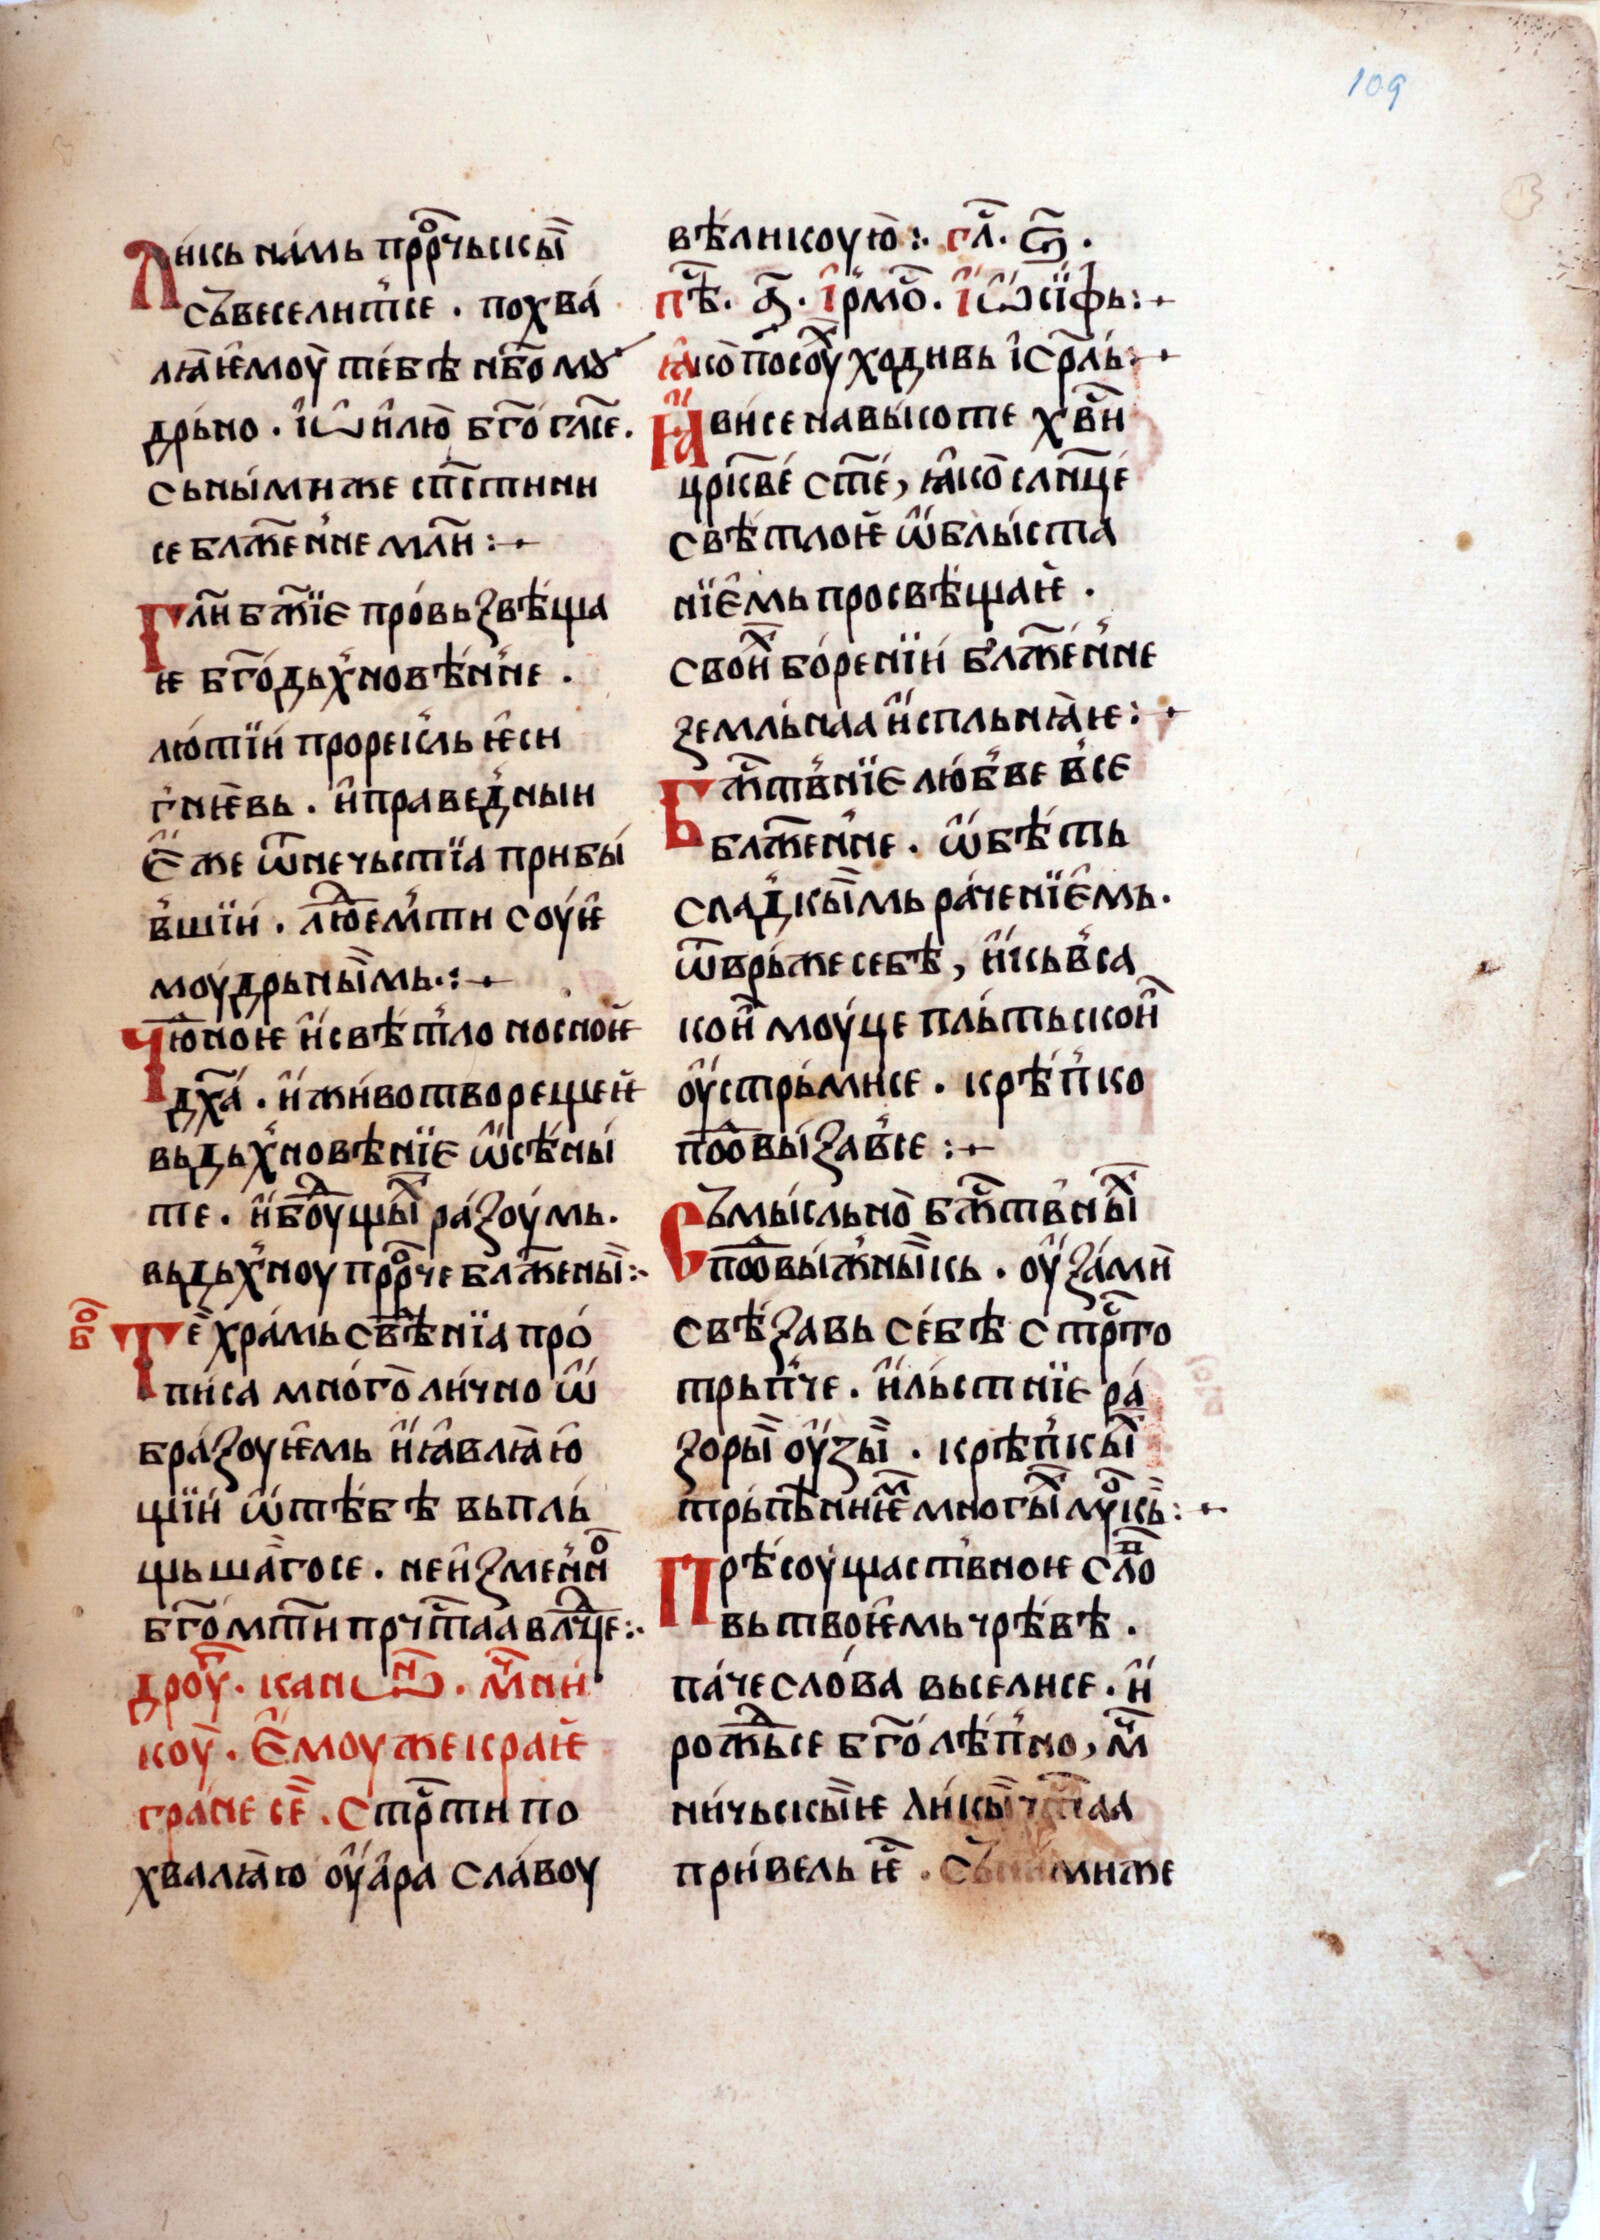 109
Ли́кь на́мь прⷪ҇рчьскы̏
съвеселит̾се . похва́
лꙗ҆ѥмоу̀ те́бѣ и҆бг҃омꙋ
дрь́но . і҆ѡ҆и҆лю̀ бг҃о́гл҃се .
сьны́миже сп҃стини
се блаж҃ен̾не мл҃и :
Гл҃и бж҃їе про́вьзвѣ́ща
ѥ бг҃о́дьх̾новѣ́н̾не .
лю́тїи прорек̾ль ѥ҆си
г̾нѣ́вь . и҆правед̾ныи
Е҆́же ѿнечь́стїа прибы́
в̾шїи . лю́де́м̾ти соу́ѥ
моу́дрьны̏мь.:
Чю̀ноѥ и҆свѣт̾ло носноѥ
дх҃а́ . и҆жи́вотворещеѥ
вьдьх̾новѣ́нїе ѡ҆сѣ́ны́
те . и҆бо́ꙋⷣщы̏ⷯ ра́зоу́мь .
вьдьх̾ноу прⷪ҇рче блаж҃ены̏ :
бⷪ҇
Те̏ хра́мь свѣ҃нїа про́
пи́са мно́го́ли́чно ѡ҆
бра́зоуѥ҆мь и҆ꙗ҆влꙗ҆ю҆
щїи ѡ҆те́бѣ вьплы́
щьша̏госе . неи҆змен̾нⷪ
бг҃ом҃ти прчⷭ҇таа влⷣчце :
дроу́гⷷ . канѡ́ⷩ . мⷱ҇ни́
коу̀ . Е҆моуже кра́ѥ
гра́не се̏ . Стрⷭ҇ти по
хвалꙗ́ю оу҆а́ра сла́воу
вѣ́ликоую̀ :. гл҃. ѕ҃ .
пⷭ҇ѣ. а҃ . І҆рмо́ⷭ . І҆ѡ҆сїфь :
ꙗ҆ко̀ посоу́хⷹ ходивь і҆сра҃ль :
Ꙗ҆ви́се навы́соте хв҃и
црк҃ве́ ст҃е́, ꙗ҆ко̀ слнц҃е́
свѣ́тлоѥ ѡ҆блы́ста
нїе҆мь просвѣ́щаѥ .
свои̏ⷯ бо́ренїи бла҃же́н̾не
земль́наа и҆спльнꙗ́ѥ :
Бжⷭ҇тв̾нїе лю́б̾ве в̾се
блаж҃ен̾не . ѡ҆бѣ́ть
слад̾кы̏мь ра́ченїе҆мь .
ѿврь́жесебѣ, и҆кьв̾са
кои̏ моу́це пль́тьскои̏
оу҆стрь́мисе . крѣп̾ко
пⷣовы́зав̾се :
Съмы́сльно̀ бжⷭ҇тв̾ны̏ⷯ
пⷣовы́ж̾ны̏кь . оу҆за́ми̏
свѣ́завь се́бѣ стрⷭ҇то
трьп̾че . и҆ль́стнїе ра́
зоры̏ оу҆зы̏ . крѣп̾кы̏ⷨ
трьпѣ́ниѥⷨ многы̏ⷯ мⷹкь̏ :
Прѣ́соущаств̾ноѥ сл҃о
вьтвоѥ҆мь чрѣ́вѣ .
па́чесло́ва вьселисе . и҆
рожⷣьсе бг҃о́лѣп̾но, мⷱ҇
ни́чьскы̏ѥ ли́кы̏ чⷭ҇таа
при́вель ѥ҆ⷭ . Съни́миже